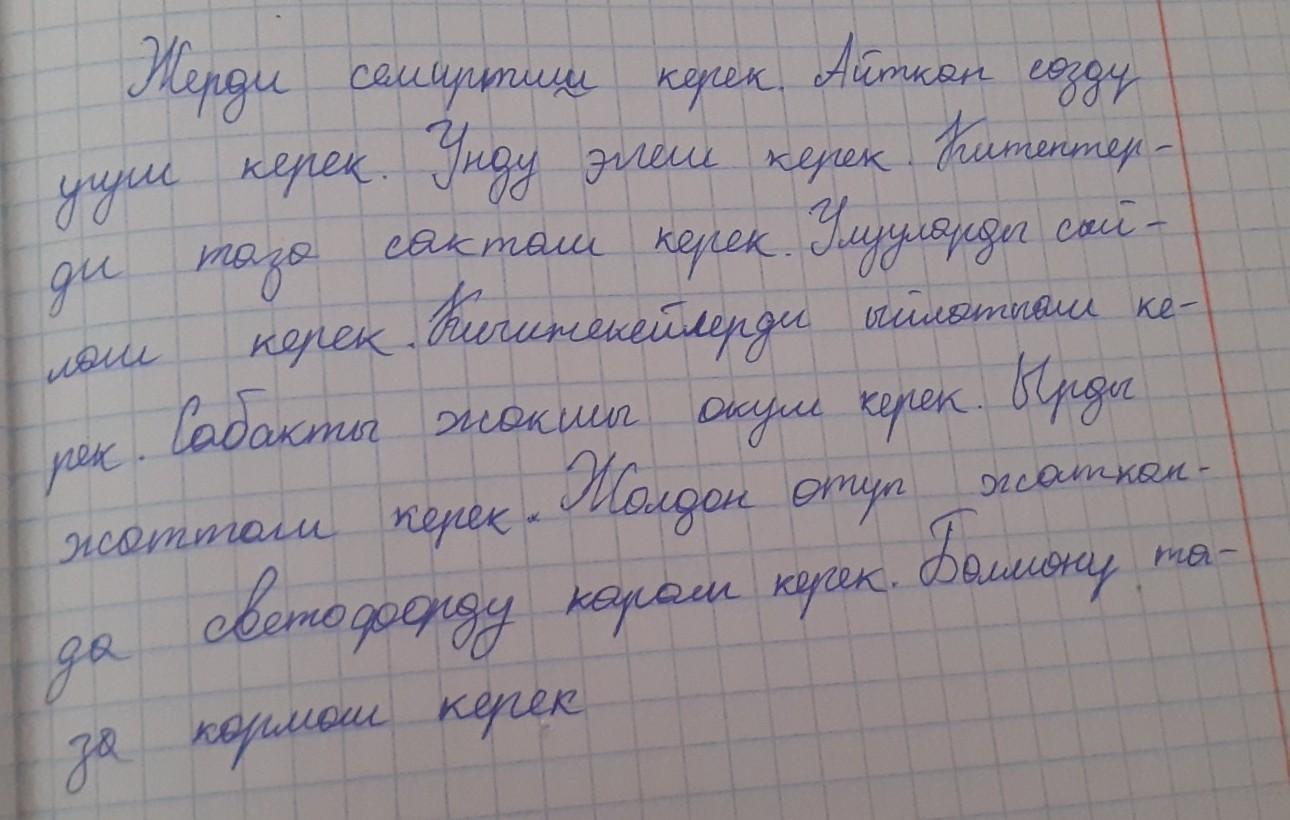 Жерди семиртиш керек. Айткан созду
угуш керек. Унду элеш керек. Китептер-
ди таза сактош керек. Улууларды сый-
лош керек. Кичинекейлерди ыйлатпаш ке-
рек. Сабакты жакшы окуш керек. Ырды
жаттош керек. Жолдон отуп жаткан-
да светофорду кароош керек. Болмону та-
за кармош керек